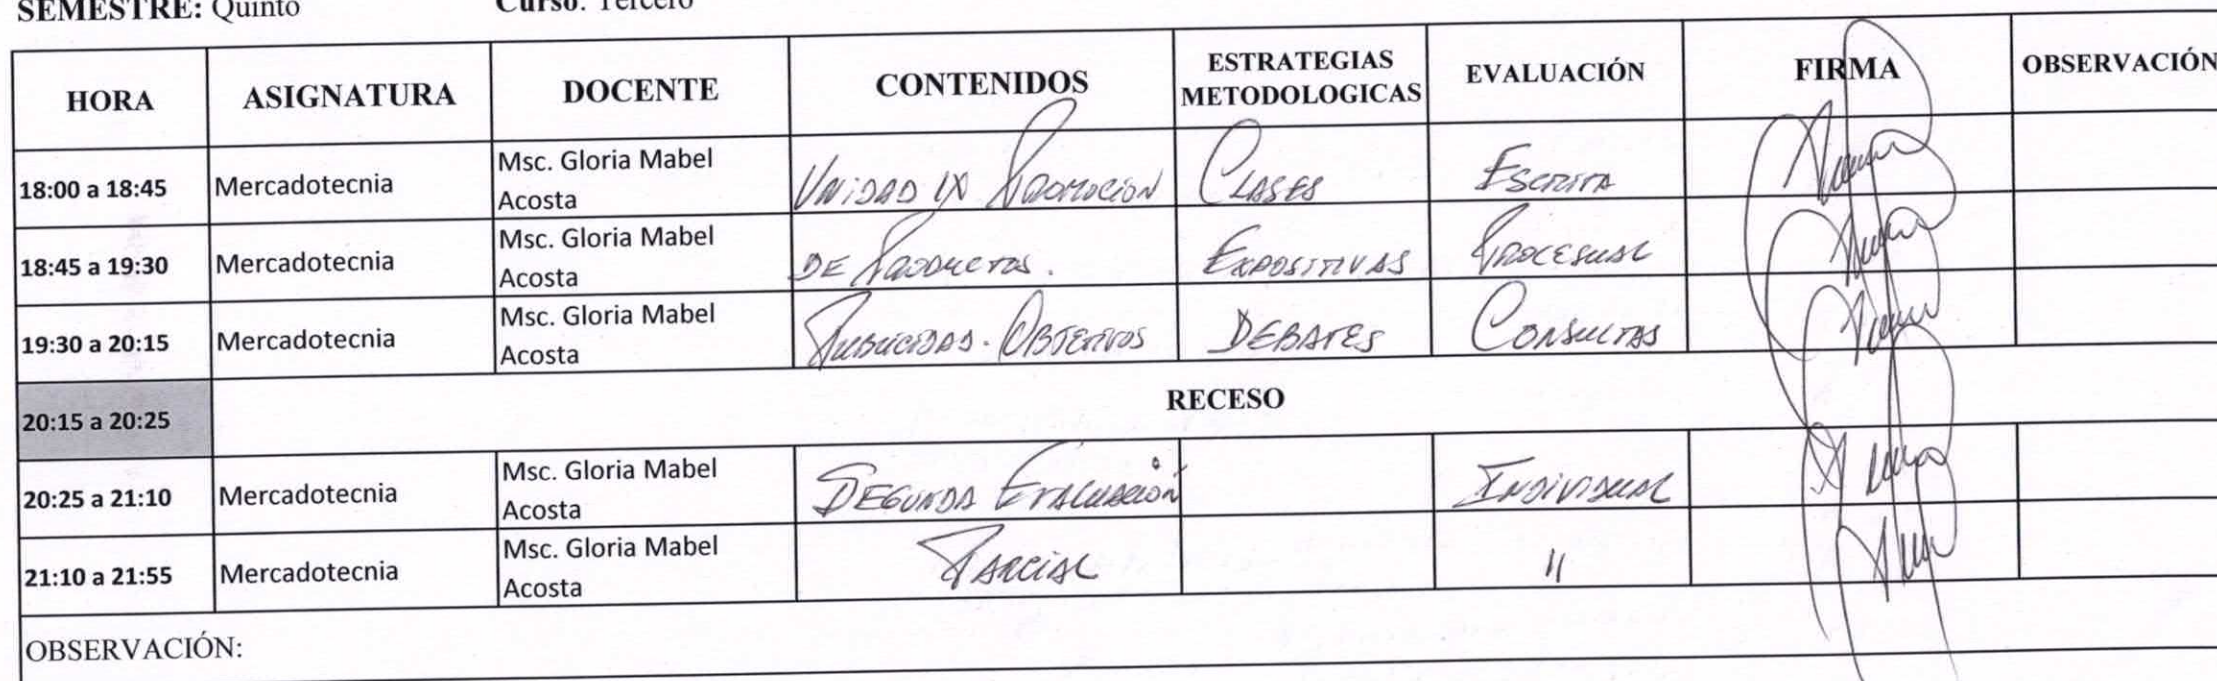 SEMESTRE: Quinto Curso: Tercero
HORA ASIGNATURA DOCENTE CONTENIDOS ESTRATEGIAS METODOLOGICAS EVALUACIÓN FIRMA OBSERVACIÓN
18:00 a 18:45 Mercadotecnia Msc. Gloria Mabel Acosta UNIDAD IX PROMOCION CLASES ESCRITA
18:45 a 19:30 Mercadotecnia Msc. Gloria Mabel Acosta DE PRODUCTOS. EXPOSITIVAS PROCESUAL
19:30 a 20:15 Mercadotecnia Msc. Gloria Mabel Acosta PUBLICIDAD. OBJETIVOS DEBATES CONSULTAS
20:15 a 20:25 RECESO
20:25 a 21:10 Mercadotecnia Msc. Gloria Mabel Acosta SEGUNDA EVALUACIÓN INDIVIDUAL
21:10 a 21:55 Mercadotecnia Msc. Gloria Mabel Acosta PARCIAL "
OBSERVACIÓN: